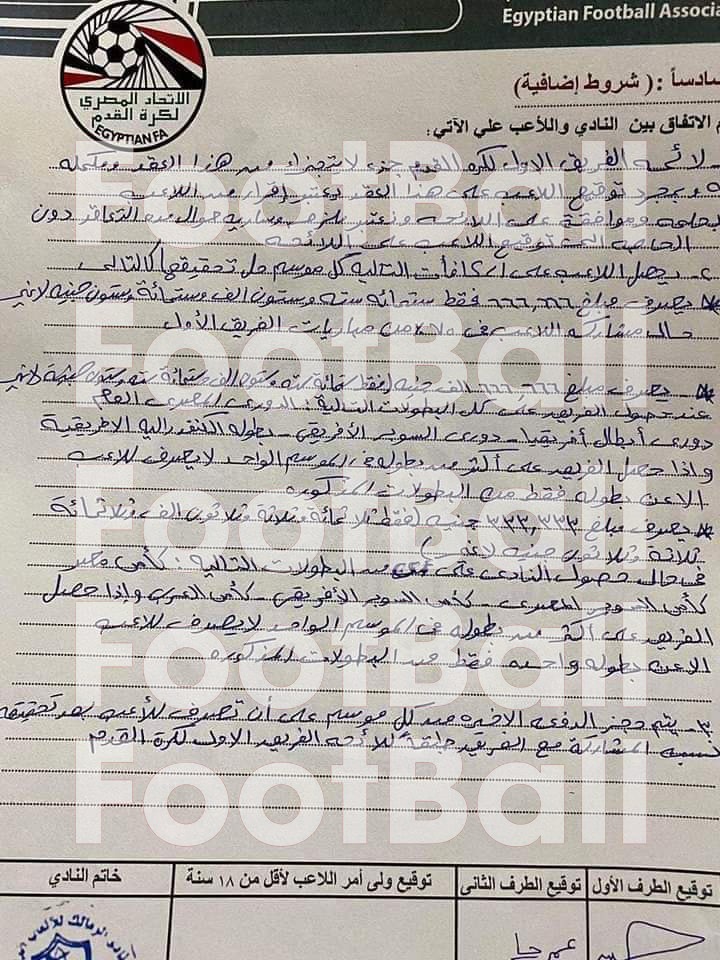 Egyptian Football Associa
الاتحاد المصري
لكرة القدم
EGYPTIAN FA
سادساً : ( شروط إضافية)
الاتفاق بين النادي واللاعب علي الآتي:
لائحة الفريق الاول لكرة القدم جزء لا يتجزأ من هذا العقد ومكمله
وبمجرد توقيع اللاعب على هذا العقد يعتبر إقرار من اللاعب
بعلمه وموافقة على اللائحه وتعتبر ملزمه وساريه طوال مدة التعاقد دون
الحاجه الى توقيع اللاعب على اللائحة
٢- يحصل اللاعب على المكافأت التاليه كل موسم حال تحقيقها كالتالى
يصرف مبلغ ٦٦٦,٦٦٦ فقط ستمائه سته وستون الف وستمائة وستون جنيه لاغير
حال مشاركه اللاعب فى من مباريات الفريق الأول
يصرف مبلغ ٦٦٦,٦٦٦ الف جنيه (فقط ستمائة سته وستون الف وستمائة سته وستون جنيهة لاغير
عند حصول الفريق على كل البطولات التالية : الدورى المصرى العام
دورى أبطال أفريقيا - دورى السوبر الأفريقى - بطوله الكنفدراليه الافريقية
واذا حصل الفريق على أكثر من بطوله فى الموسم الواحد لا يصرف للاعب
الاعن بطوله فقط من البطولات المذكوره
يصرف مبلغ ٣٣٣,٣٣٣ جنيه (فقط ثلاثمائة وثلاثة وثلاثون الف وثلاثمائة
ثلاثة وثلاثون جنيه لاغير)
فى حال حصول النادى على من البطولات التاليه : كأس مصر
كأس السوبر المصرى - كأس السوبر الأفريقى - كأس العرب واذا حصل
الفريق على أكثر من بطوله فى الموسم الواحد لا يصرف للاعب
الاعن بطوله واحده فقط من البطولات المذكوره
٣- يتم حجز الدفعه الاخيره من كل موسم على أن تصرف للاعب بعد تحقيقه
نسبه المشاركة مع الفريق طبقاً للائحه الفريق الاول لكرة القدم
توقيع الطرف الأول توقيع الطرف الثانى توقيع ولى أمر اللاعب لأقل من ١٨ سنة خاتم النادي
FootBall
FootBall
FootBall
FootBall
FootBall